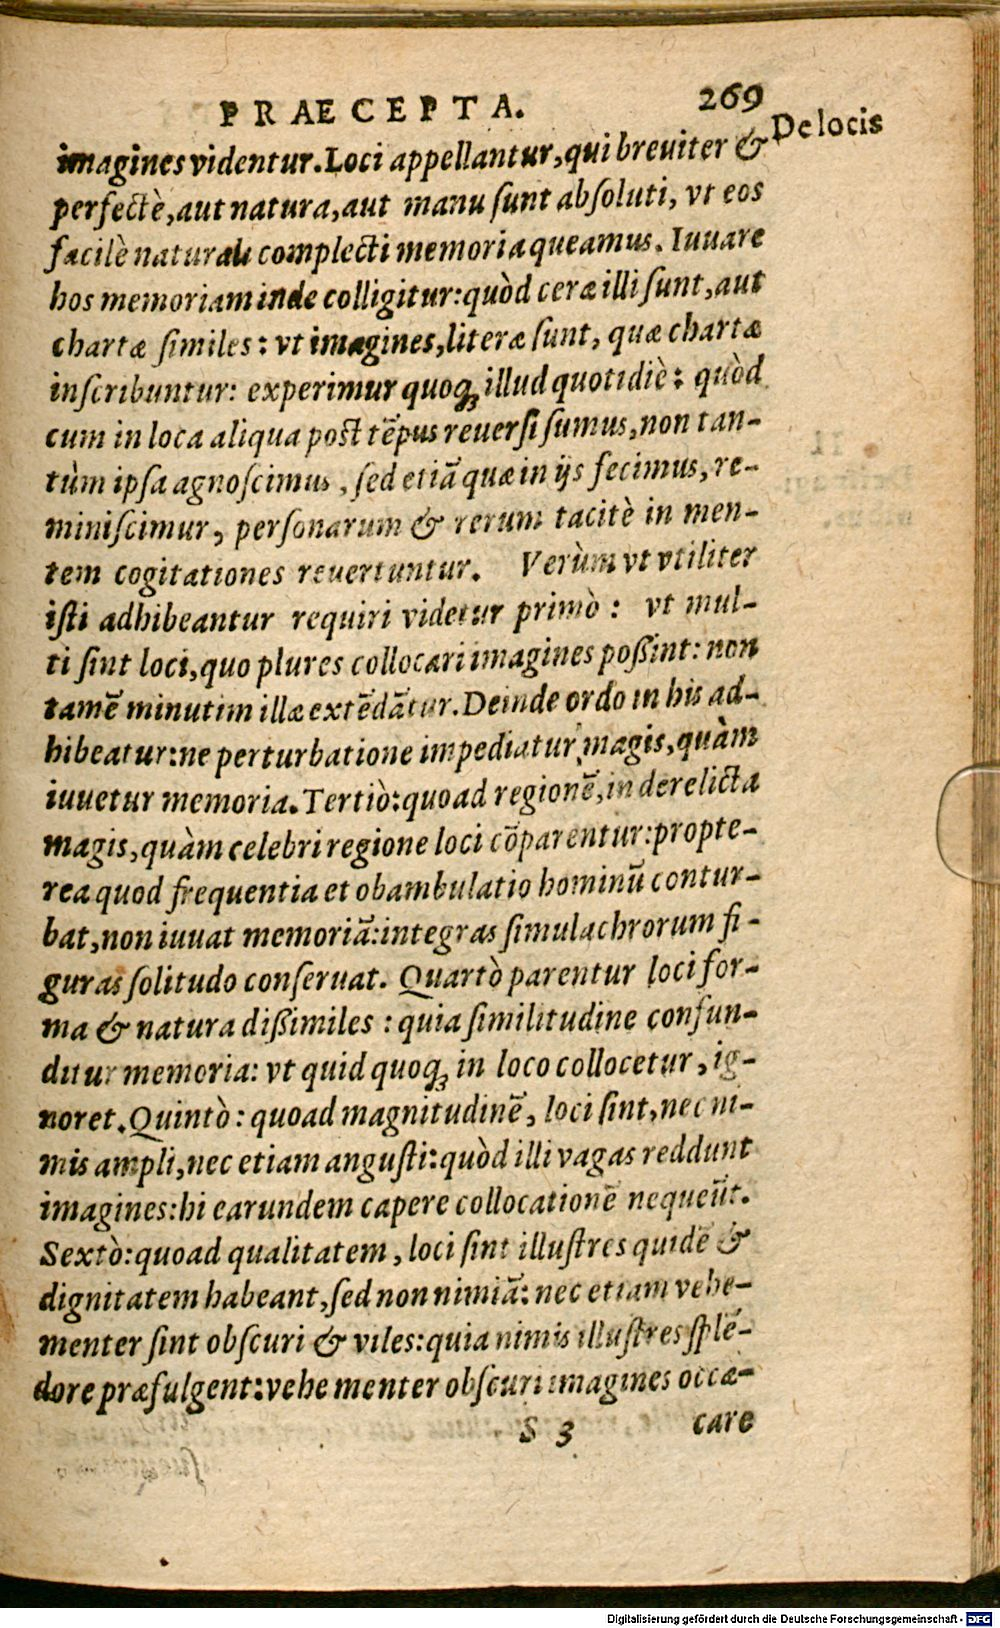 PRAECEPTA. 269
De locis
imagines videntur. Loci appellantur, qui breuiter &
perfectè, aut natura, aut manu ſunt abſoluti, vt eos
facilè naturali complecti memoria queamus. Iuuare
hos memoriam inde colligitur: quòd ceræ illi ſunt, aut
chartæ ſimiles: vt imagines, literæ ſunt, quæ chartæ
inſcribuntur: experimur quoqꝫ illud quotidiè: quòd
cum in loca aliqua poſt tẽpus reuerſi ſumus, non tan-
tùm ipſa agnoſcimus, ſed etiã quæ in ijs fecimus, re-
miniſcimur, perſonarum & rerum tacitè in men-
tem cogitationes reuertuntur. Verùm vt vtiliter
iſti adhibeantur requiri videtur primò: vt mul-
ti ſint loci, quo plures collocari imagines poßint: non
tamẽ minutim illæ extẽdãtur. Deinde ordo in his ad-
hibeatur: ne perturbatione impediatur magis, quàm
iuuetur memoria. Tertiò: quoad regionẽ, in derelicta
magis, quàm celebri regione loci cõparentur: propte-
rea quod frequentia et obambulatio hominũ contur-
bat, non iuuat memoriã: integras ſimulachrorum fi-
guras ſolitudo conſeruat. Quartò parentur loci for-
ma & natura dißimiles: quia ſimilitudine confun-
ditur memoria: vt quid quoqꝫ in loco collocetur, ig-
noret. Quintò: quoad magnitudinẽ, loci ſint, nec ni-
mis ampli, nec etiam anguſti: quòd illi vagas reddunt
imagines: hi earundem capere collocationẽ nequeũt.
Sextò: quoad qualitatem, loci ſint illuſtres quidẽ &
dignitatem habeant, ſed non nimiã: nec etiam vehe-
menter ſint obſcuri & viles: quia nimis illuſtres ſplẽ-
dore præfulgent: vehementer obſcuri imagines occæ-
S 3 care
Digitalisierung gefördert durch die Deutsche Forschungsgemeinschaft - DFG